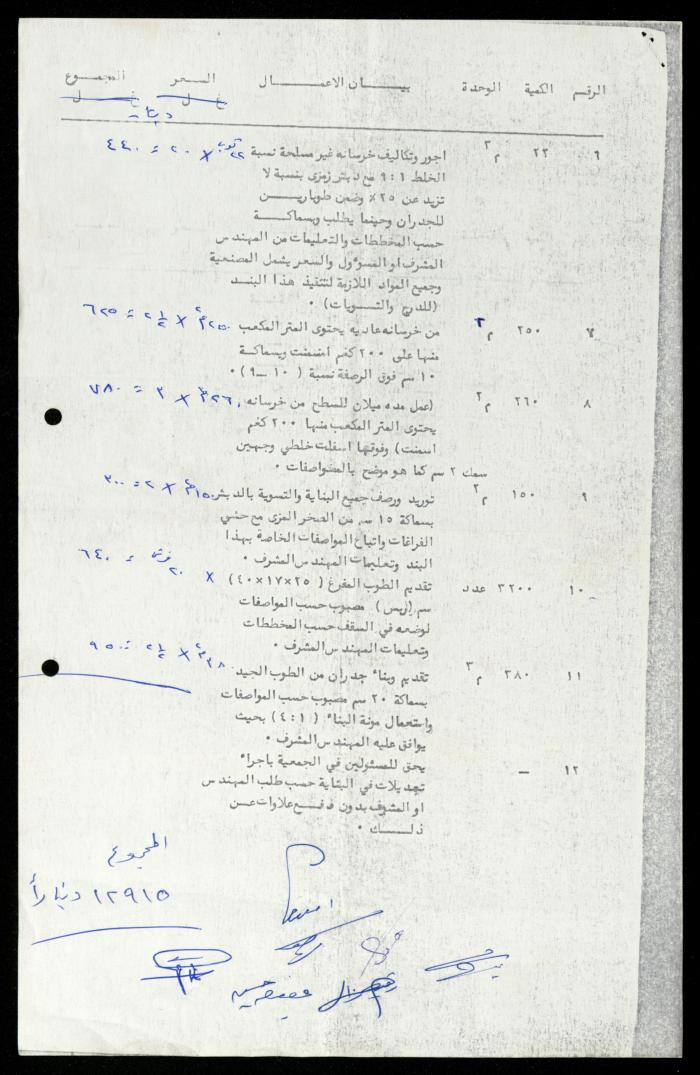 الرقم الكمية الوحدة بيـــان الاعمـــال السعر المجموع
دينار
٦ ٢٢ م٣ اجور وتكاليف خرسانه غير مسلحة نسبة ٢٢ × ٢٠ = ٤٤٠
الخلط ١ : ٩ مع دبش رمزى بنسبة لا
تزيد عن ٢٥٪ وضمن طوباريـــن
للجدران وحيثما يطلب وبسماكـــة
حسب المخططات والتعليمات من المهندس
المشرف او المسؤول والسعر يشمل المصنعية
وجميع المواد اللازمة لتنفيذ هذا البنـــد
(للدرج والتسـويات) ٠
٧ ٢٥٠ م٢ من خرسانه عاديه يحتوى المتر المكعب ٢٥٠م٢ × ٢½ = ٦٢٥
منها على ٢٠٠ كغم اسمنت وبسماكـــة
١٠ سم فوق الرصفة نسبة ( ١٠ – ٩ ) ٠
٨ ٢٦٠ م٢ (عمل مده ميلان للسطح من خرسانه ٢٦٠م٢ × ٣ = ٧٨٠
يحتوى المتر المكعب منها ٢٠٠ كغم
اسمنت) وفوقها اسفلت خلطي وجهين
سمك ٢ سم كما هو موضح بالمواصفات ٠
٩ ١٥٠ م٢ توريد ورصف جميع البناية والتسوية بالدبش ١٥٠م٢ × ٢ = ٣٠٠
بسماكة ١٥ سم من الصخر المزى مع حشي
الفراغات واتباع المواصفات الخاصة بهذا
البند وتعليمات المهندس المشرف ٠
١٠ ٣٢٠٠ عدد تقديم الطوب المفرغ ( ٢٥×١٧×٤٠) × ٢٠ قرش = ٦٤٠
سم (ريس) مصبوب حسب المواصفات
لوضعه في السقف حسب المخططات
وتعليمات المهندس المشرف ٠
١١ ٣٨٠ م٣ تقديم وبناء جدران من الطوب الجيد ٣٨٠م٢ × ٢½ = ٩٥٠
بسماكة ٢٠ سم مصبوب حسب المواصفات
واستعمال مونة البناء ( ١ : ٤ ) بحيث
يوافق عليه المهندس المشرف ٠
١٢ – يحق للمسئولين في الجمعية باجراء
تعديلات في البناية حسب طلب المهندس
او المشرف بدون دفـــع علاوات عـــن
ذلـــك ٠
المجموع
١٢٩١٥ ديناراً